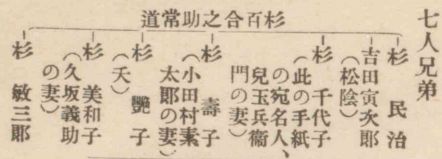 七人兄弟
杉百合之助常道
杉 民治
吉田寅次郎
(松陰)
杉 千代子
(此の手紙
の宛名人、
兒玉兵衞
門の妻)
杉 壽子
(小田村素
太郎の妻)
杉 艷子
(夭)
杉 美和子
(久坂義助
の妻)
杉 敏三郎